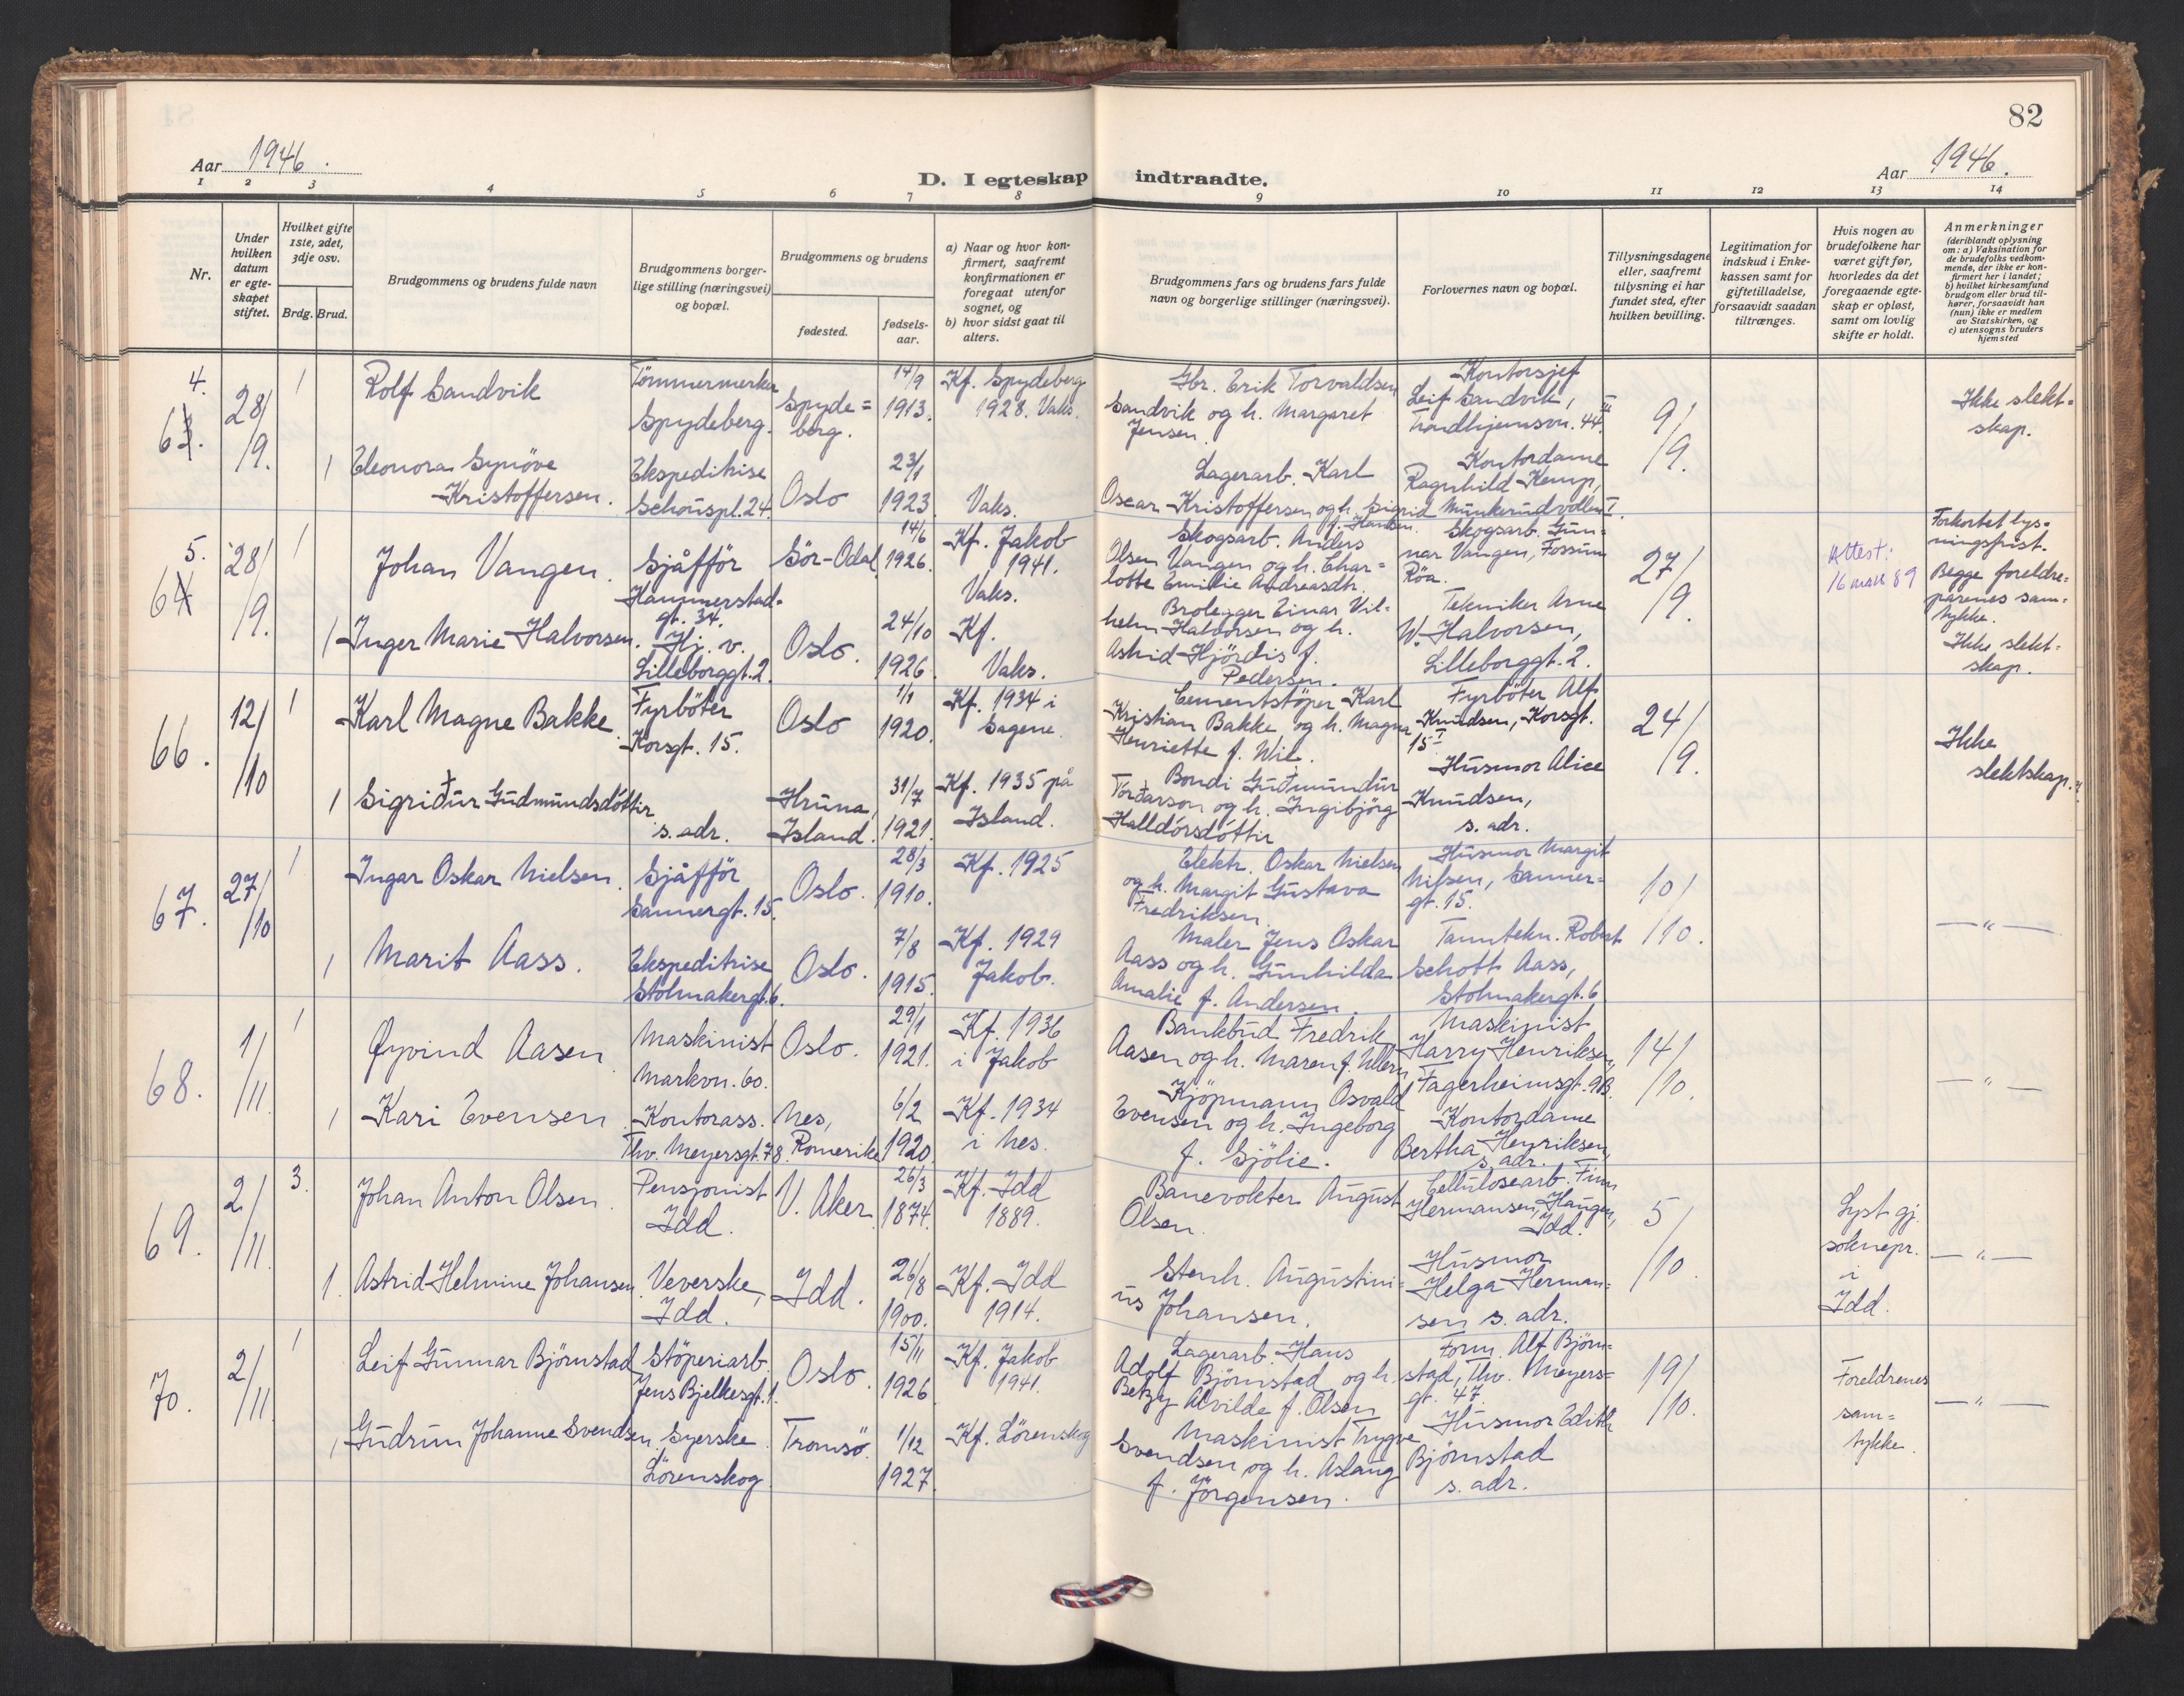 82
Aar 1946.
D. I egteskap indtraadte.
Aar 1946.
1 2 3 4 5 6 7 8 9 10 11 12 13 14
Nr.
Under hvilken datum er egteskapet stiftet.
Hvilket gifte 1ste, 2det, 3dje osv.
Brdg. Brud.
Brudgommens og brudens fulde navn
Brudgommens borgerlige stilling (næringsvei) og bopæl.
Brudgommens og brudens
fødested.
fødselsaar.
a) Naar og hvor konfirmert, saafremt konfirmationen er foregaat utenfor sognet, og
b) hvor sidst gaat til alters.
Brudgommens fars og brudens fars fulde navn og borgerlige stillinger (næringsvei).
Forlovernes navn og bopæl.
Tillysningsdagene eller, saafremt tillysning ei har fundet sted, efter hvilken bevilling.
Legitimation for indskud i Enkekassen samt for giftetilladelse, forsaavidt saadan tiltrænges.
Hvis nogen av brudefolkene har været gift før, hvorledes da det foregaaende egteskap er opløst, samt om lovlig skifte er holdt.
Anmerkninger
(deriblandt oplysning om: a) Vaksination for de brudefolks vedkommende, der ikke er konfirmert her i landet;
b) hvilket kirkesamfund brudgom eller brud tilhører, forsaavidt han (hun) ikke er medlem av Statskirken, og
c) utensogns bruders hjemsted
4.
28/9. 1 Rolf Sandvik
Tømmermerker
Spydeberg.
Spyde=
berg.
14/9
1913.
Kf. Spydeberg
1928. Vaks.
Gbr. Erik Torvaldsen
Sandvik og h. Margaret
Jensen.
Kontorsjef
Leif Sandvik,
Trondhjemsvn. 44 III
9/9.
Ikke slekt=
skap.
1 Eleonora Synöve
Kristoffersen.
Ekspeditrise
Schouspl. 24.
Oslo
23/1
1923.
Vaks.
Lagerarb. Karl
Oscar Kristoffersen og h. Sigrid
f. Hansen.
Kontordame
Ragnhild Kemp,
Munkerudvollen I.
5.
28/9. 1 Johan Vangen.
Sjåfför
Hammerstad-
gt. 34.
Sör-Odal
14/6
1926.
Kf. Jakob
1941.
Vaks.
Skogsarb. Anders
Olsen Vangen og h. Char=
lotte Emilie Andreasdtr.
Skogsarb. Gun=
nar Vangen, Fossum
Röa.
27/9.
Attest:
16 mars 89
Forkortet lys=
ningsfrist.
Begge foreldre=
parenes sam=
tykke.
Ikke slekt=
skap.
1 Inger Marie Halvorsen.
Hj. v.
Lilleborggt. 2.
Oslo.
24/10
1926.
Kf.
Vaks.
Brolegger Einar Vil=
helm Halvorsen og h.
Astrid Hjördis f.
Pedersen.
Tekniker Arne
W. Halvorsen,
Lilleborggt. 2.
66. 12/10 1 Karl Magne Bakke.
Fyrböter
Korsgt. 15.
Oslo
1/1
1920.
Kf. 1934 i
Sagene.
Cementstöper Karl
Kristian Bakke og h. Magna
Henriette f. Wie.
Fyrböter Alf
Knudsen, Korsgt.
15 I
24/9.
Ikke
slektskap.
1 Sigriður Guðmundsdóttir
s. adr.
Hruna,
Island.
31/7
1921.
Kf. 1935 på
Island.
Bondi Guðmundur
Tórðarson og h. Ingibjörg
Halldórsdóttir
Husmor Alice
Knudsen,
s. adr.
67. 27/10 1 Ingar Oskar Nielsen.
Sjåfför
Sannergt. 15.
Oslo.
28/3
1910.
Kf. 1925
Elektr. Oskar Nielsen
og h. Margit Gustava
Fredriksen.
Husmor Margit
Nilsen, Sanner=
gt. 15.
10/10.
— " —
1 Marit Aass.
Ekspeditrise
Stolmakergt. 6.
Oslo.
7/8
1915.
Kf. 1929
Jakob.
Maler Jens Oskar
Aass og h. Gunhilda
Amalie f. Andersen.
Tanntekn. Robert
Schott Aass,
Stolmakergt. 6
68. 1/11 1 Øyvind Aasen.
Maskinist
Markvn. 60.
Oslo.
29/1
1921.
Kf. 1936
i Jakob
Bankbud Fredrik
Aasen og h. Maren f. Ullern
Maskinist
Harry Henriksen,
Fagerheimsgt. 9B.
14/10.
— " —
1 Kari Evensen.
Kontorass.
Thv. Meyersgt. 78.
Nes,
Romerike
6/2
1920.
Kf. 1934
i Nes.
Kjöpmann Osvald
Evensen og h. Ingeborg
f. Sjölie.
Kontordame
Bertha Henriksen,
s. adr.
69. 2/11. 3. Johan Anton Olsen.
Pensjonist
Idd.
V. Aker.
26/3
1874.
Kf. Idd
1889.
Banevokter August
Olsen.
Cellulosearb. Finn
Hermansen, Haugen,
Idd.
5/10.
Lyst gj.
soknepr.
i
Idd.
— " —
1. Astrid Helmine Johansen.
Veverske,
Idd.
Idd.
26/8
1900.
Kf. Idd
1914.
Stenh. Augustini=
us Johansen.
Husmor
Helga Herman=
sen s. adr.
70. 2/11. 1 Leif Gunnar Björnstad
Stöperiarb.
Jens Bjelkesgt. 1.
Oslo.
15/11
1926.
Kf. Jakob
1941.
Lagerarb. Hans
Adolf Björnstad og h.
Betzy Alvilde f. Olsen
Form. Alf Björn=
stad, Thv. Meyers=
gt. 47.
19/10.
Foreldrenes
sam=
tykke.
— " —
1 Gudrun Johanne Svendsen.
Syerske.
Lörenskog
Tromsö.
1/12
1927.
Kf. Lörenskog
Maskinist Trygve
Svendsen og h. Aslaug
f. Jörgensen.
Husmor Edith
Björnstad
s. adr.